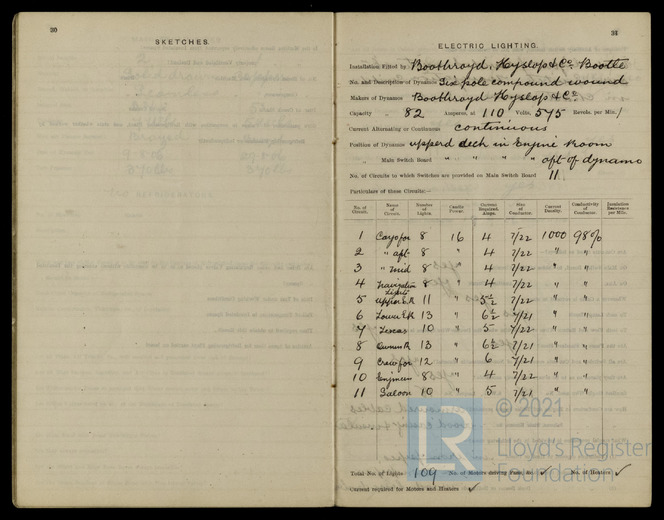 30
SKETCHES.
31
ELECTRIC LIGHTING.
Installation Fitted by Boothroyd, Hyslop & Co. Bootle
No. and Description of Dynamos Six pole compound wound
Makers of Dynamos Boothroyd Hyslop & Co.
Capacity " 82 Amperes, at 110 Volts, 575 Revols. per Min.
Current Alternating or Continuous continuous
Position of Dynamos upperd deck in Engine Room
" Main Switch Board " " " " aft of dynamo
No. of Circuits to which Switches are provided on Main Switch Board 11
Particulars of these Circuits:—
No. of Circuit. Name of Circuit. Number of Lights. Candle Power. Current Required. Amps. Size of Conductor. Current Density. Conductivity of Conductor. Insulation Resistance per Mile.
1 Cargo for 8 16 4 7/22 1000 98%
2 " aft 8 " 4 7/22 " "
3 " mid 8 " 4 7/22 " "
4 Navigation Lights 8 " 4 7/22 " "
5 Upper E.R 11 " 5½ 7/22 " "
6 Lower E R 13 " 6½ 7/21 " "
7 10 " 5 7/22 " "
8 R 13 " 6½ 7/21 " "
9 Crew for 12 " 6 7/21 " "
10 Engineers 8 " 4 7/22 " "
11 Saloon 10 " 5 7/21 " "
Total No. of Lights 109 No. of Motors driving Fans, &c. ✓ No. of Heaters ✓
Current required for Motors and Heaters ✓
LR
© 2021
Lloyd's Register
Foundation